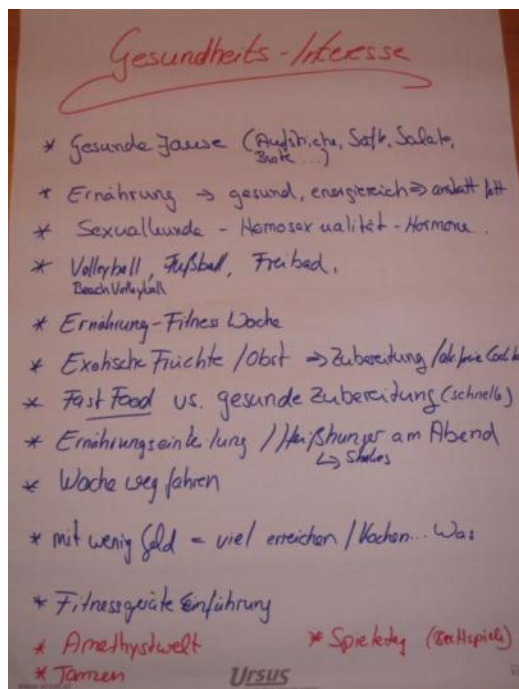 Gesundheits-Interesse
* Gesunde Jause (Aufstriche, Säfte, Salate,
Brote...)
* Ernährung → gesund, energiereich ⇒ anstatt fett
* Sexualkunde - Homosexualität - Hormone...
* Volleyball, Fußball, Freibad,
Beach Volleyball
* Ernährung-Fitness Woche
* Exotische Früchte / Obst ⇒ Zubereitung /
* Fast Food vs. gesunde Zubereitung (schnelle)
* Ernährungseinteilung // Heißhunger am Abend
↳ Shakes
* Woche weg fahren
* mit wenig Geld = viel erreichen / Kochen... Was
* Fitnessgeräte Einführung
* Amethystwelt
* Spieletag (Brettspiele)
* Tanzen
Ursus